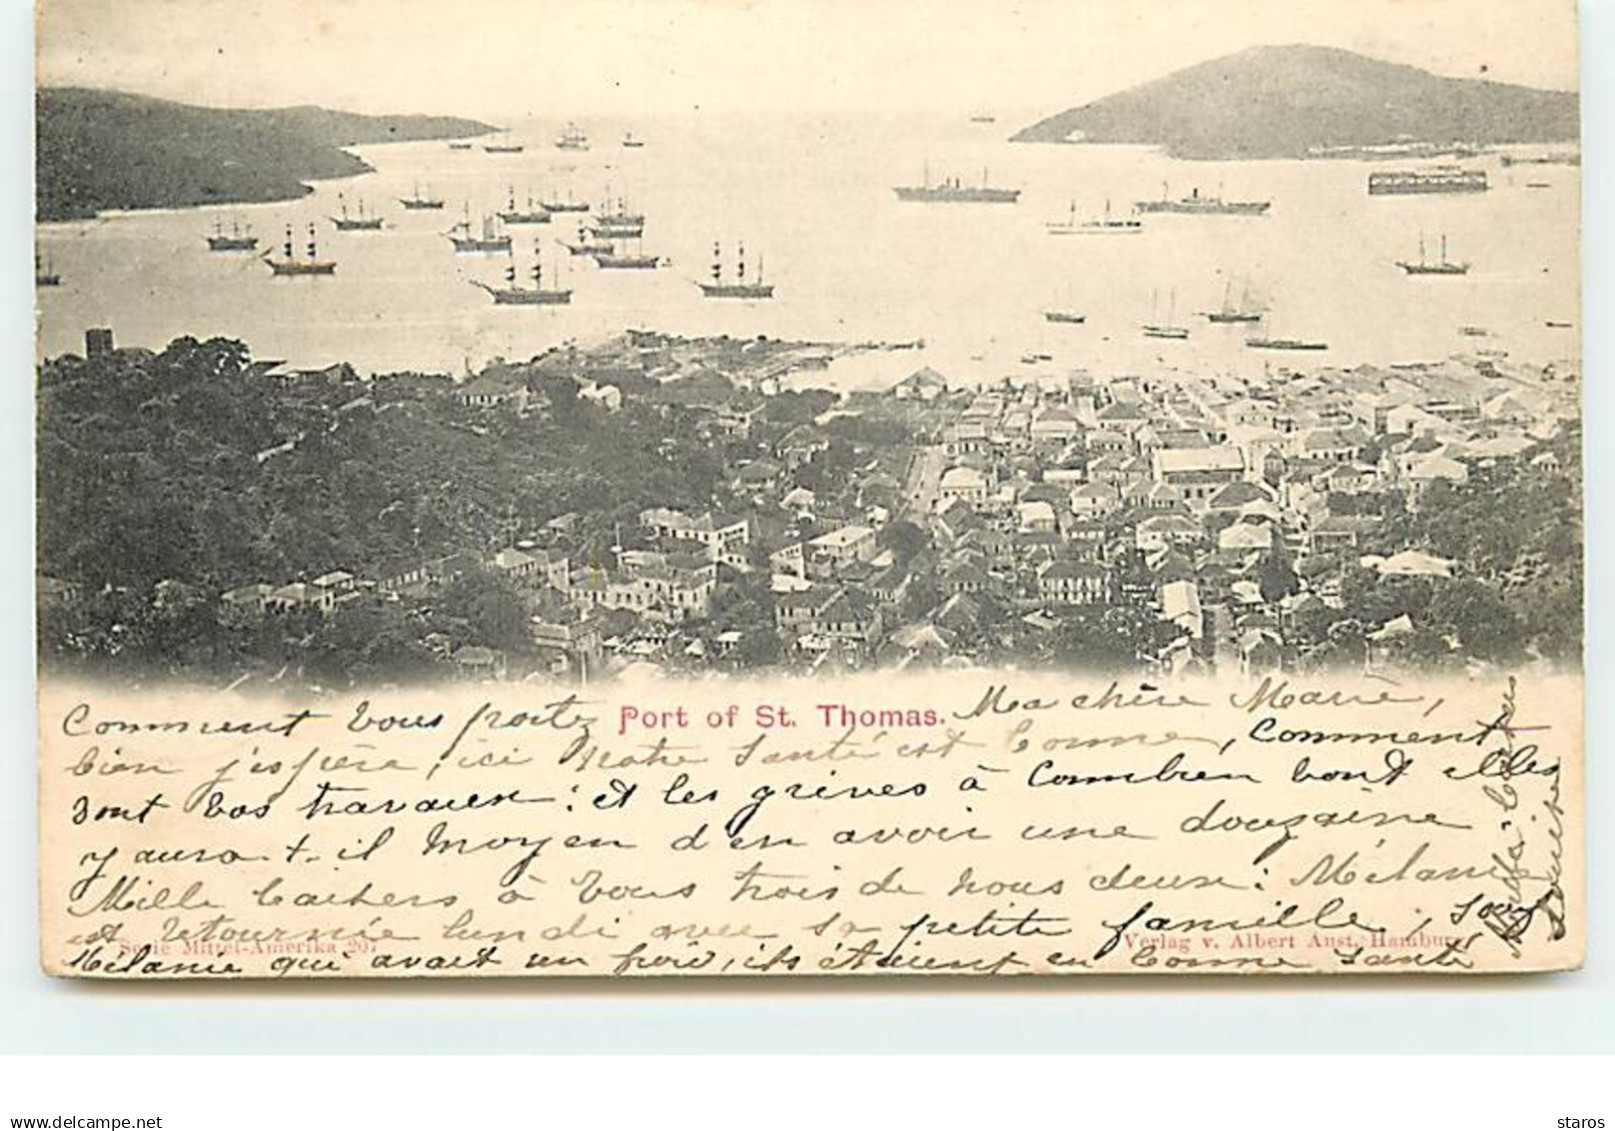 Ma chère Marie,
Comment vous portez Port of St. Thomas.
bien j'espère, ici notre santé est bonne, Comment
sont vos travaux: et les grives à combien vont elles
y aura-t-il moyen d'en avoir une douzaine
Mille baisers à vous trois de nous deux: Mélanie
est retournée lundi avec sa petite famille,
Serie Mittel-Amerika 207 Verlag v. Albert Aust, Hamburg
Mélanie qui avait un, ils étaient en bonne santé
Louise
delcampe.net
staros